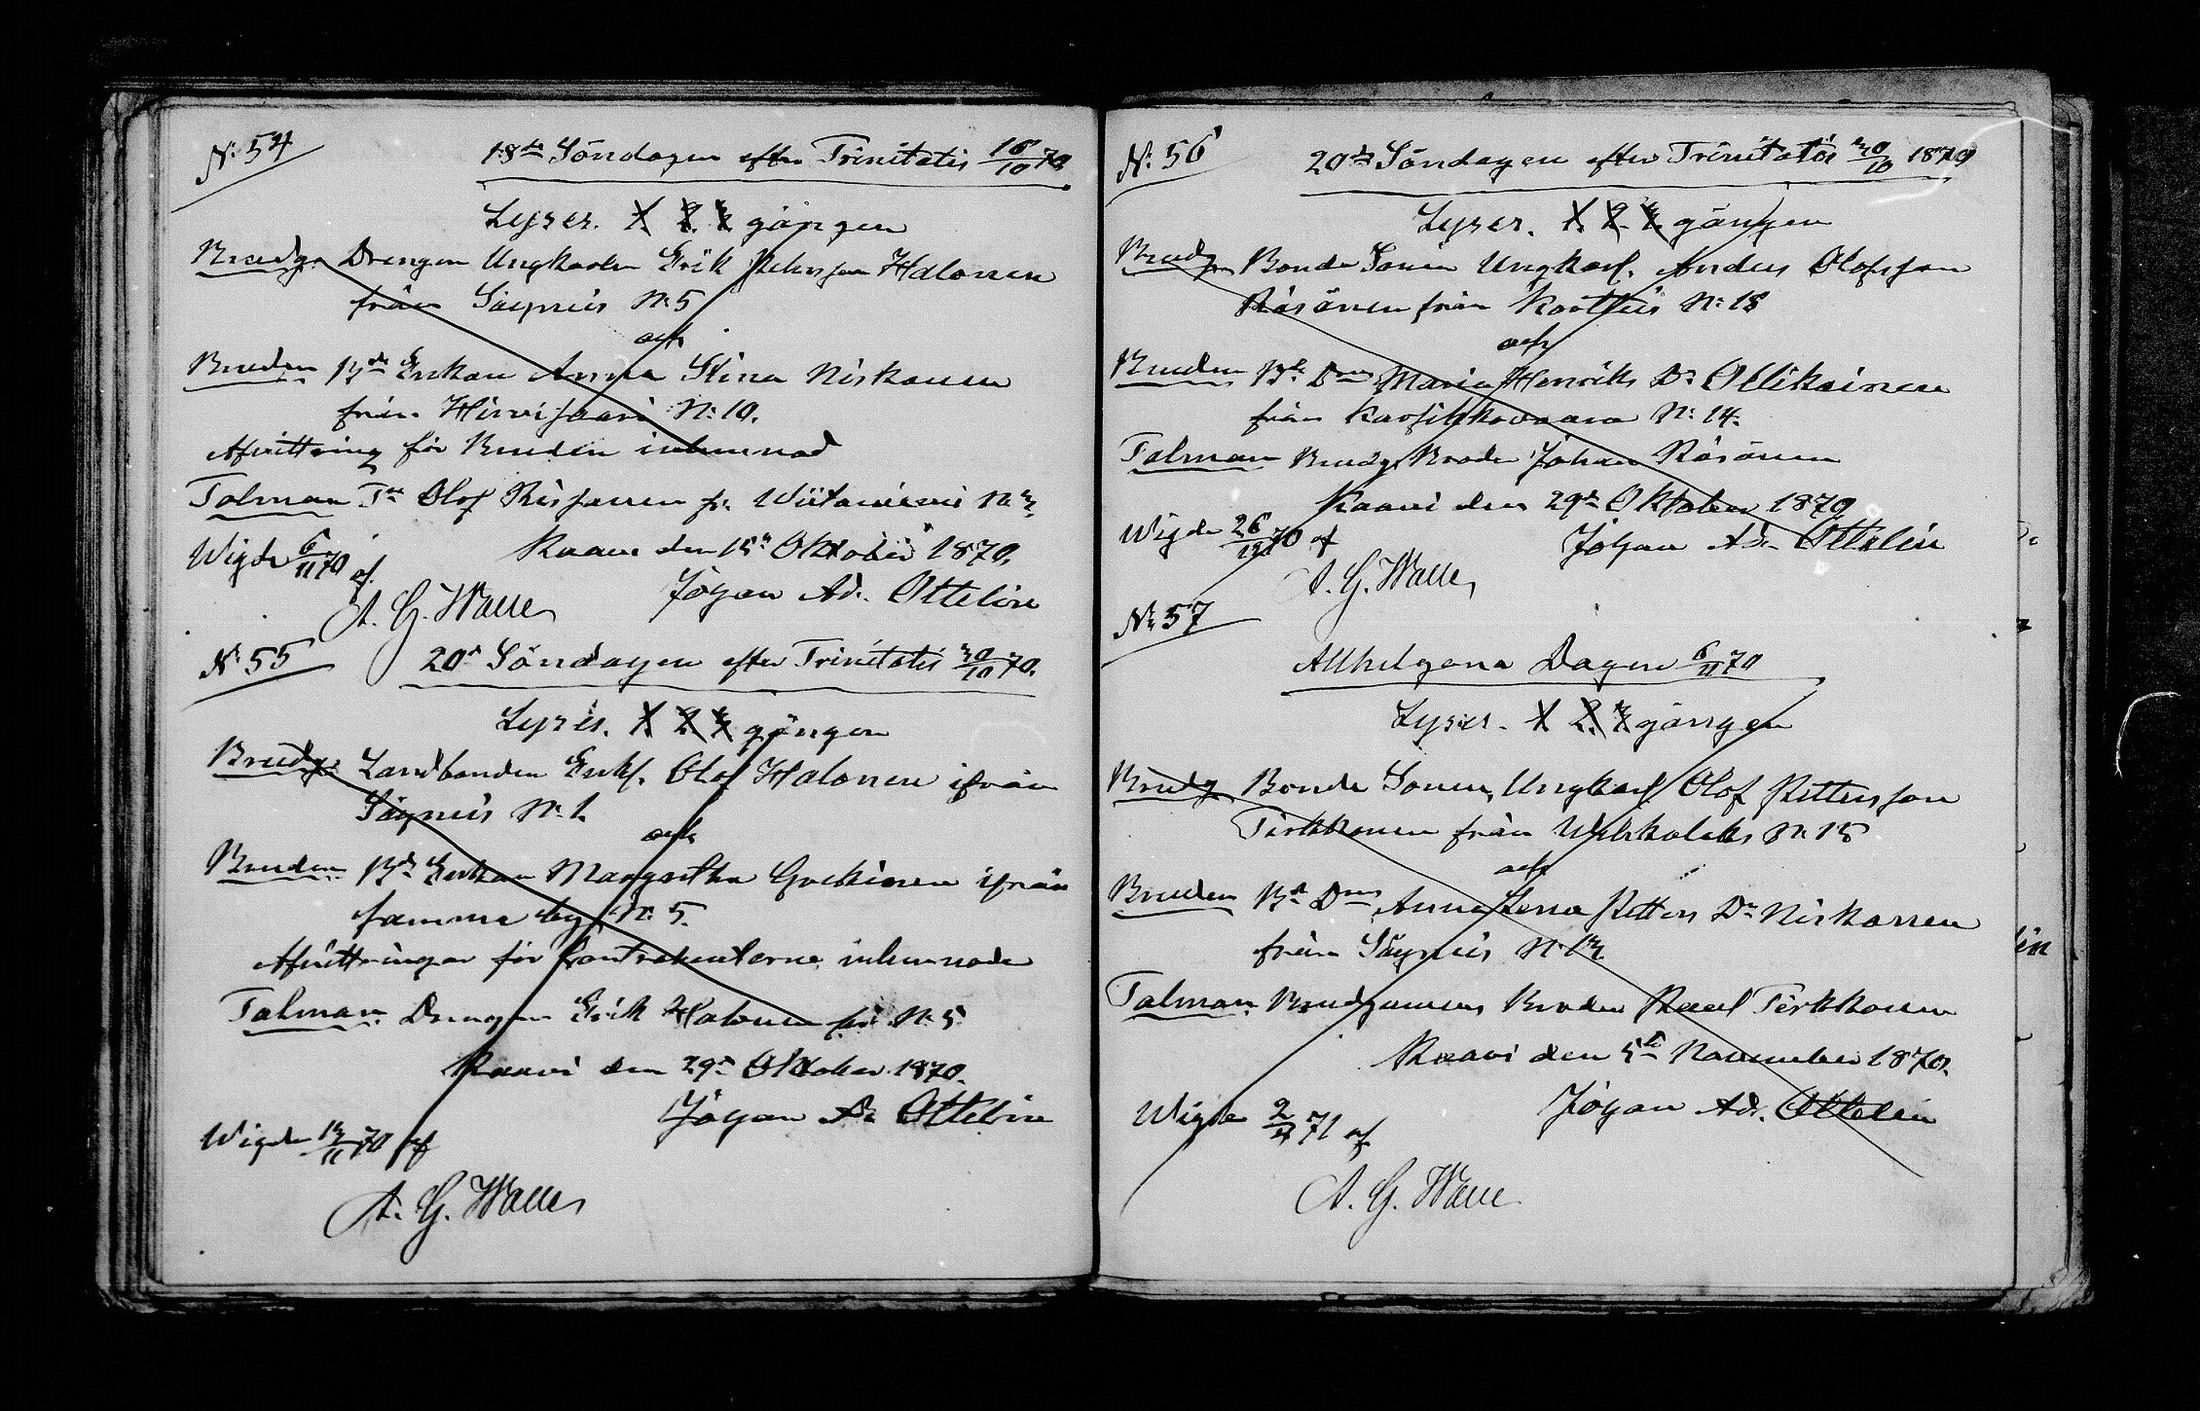 N: 54
18de Söndagen efter Trinitatis 16/10 70.
Lyses. 1. 2. 3 gången
Brudg. Drengen Ungkarlen Erik Petersson Halonen
från Säyneis N: 5
och
Bruden Bde Enkan Anna Stina Niskanen
från Hirvisaari N: 10.
Afvittring för Bruden inlemnad
Talman Olof fr. N: 3.
Kaavi den 15de Oktober 1870.
Wigde 6/11 70 af.
Johan Ad. Ottelin
A. G. Walle
N: 55
20de Söndagen efter Trinitatis 30/10 70.
Lyses. 1. 2. 3 gången
Brudg. Landbonden Enkl. Olof Halonen ifrån
Säyneis N: 1.
och
Bruden Bde Enkan Margretha ifrån
samma by N: 5.
Afvittringar för Contrahenterne inlemnade
Talman. Drengen Erik Halonen fr. N: 5
Kaavi den 29de Oktober 1870.
Johan Ad. Ottelin
Wigde 13/11 70 af
A. G. Walle
N: 56
20de Söndagen efter Trinitatis 30/10 1870
Lyses. 1. 2. 3 gången
Brudg. Bonde Sonen Ungkarl. Anders Olofsson
Räsänen från Kortteis N: 18
och
Bruden Bde Dren Maria Henriks Dr Ollikainen
från Karsikkovaara N: 14.
Talman Brudg. Broder Johan Räsänen
Kaavi den 29de Oktober 1870
Wigde 26/12 70 af
Johan Ad. Ottelin
A. G. Walle
N: 57
Allhelgona Dagen 6/11 70
Lyses. 1. 2. 3 gången
Brudg. Bonde Sonen, Ungkarl Olof Pettersson
Tirkkonen från N: 15
och
Bruden Bde Dren Anna Lena Petters Dr Niskanen
från Säyneis N: 13
Talman. Brudgummens Broder Paul Tirkkonen
Kaavi den 5te November 1870.
Johan Ad. Ottelin
Wigde 71 af
A. G. Walle